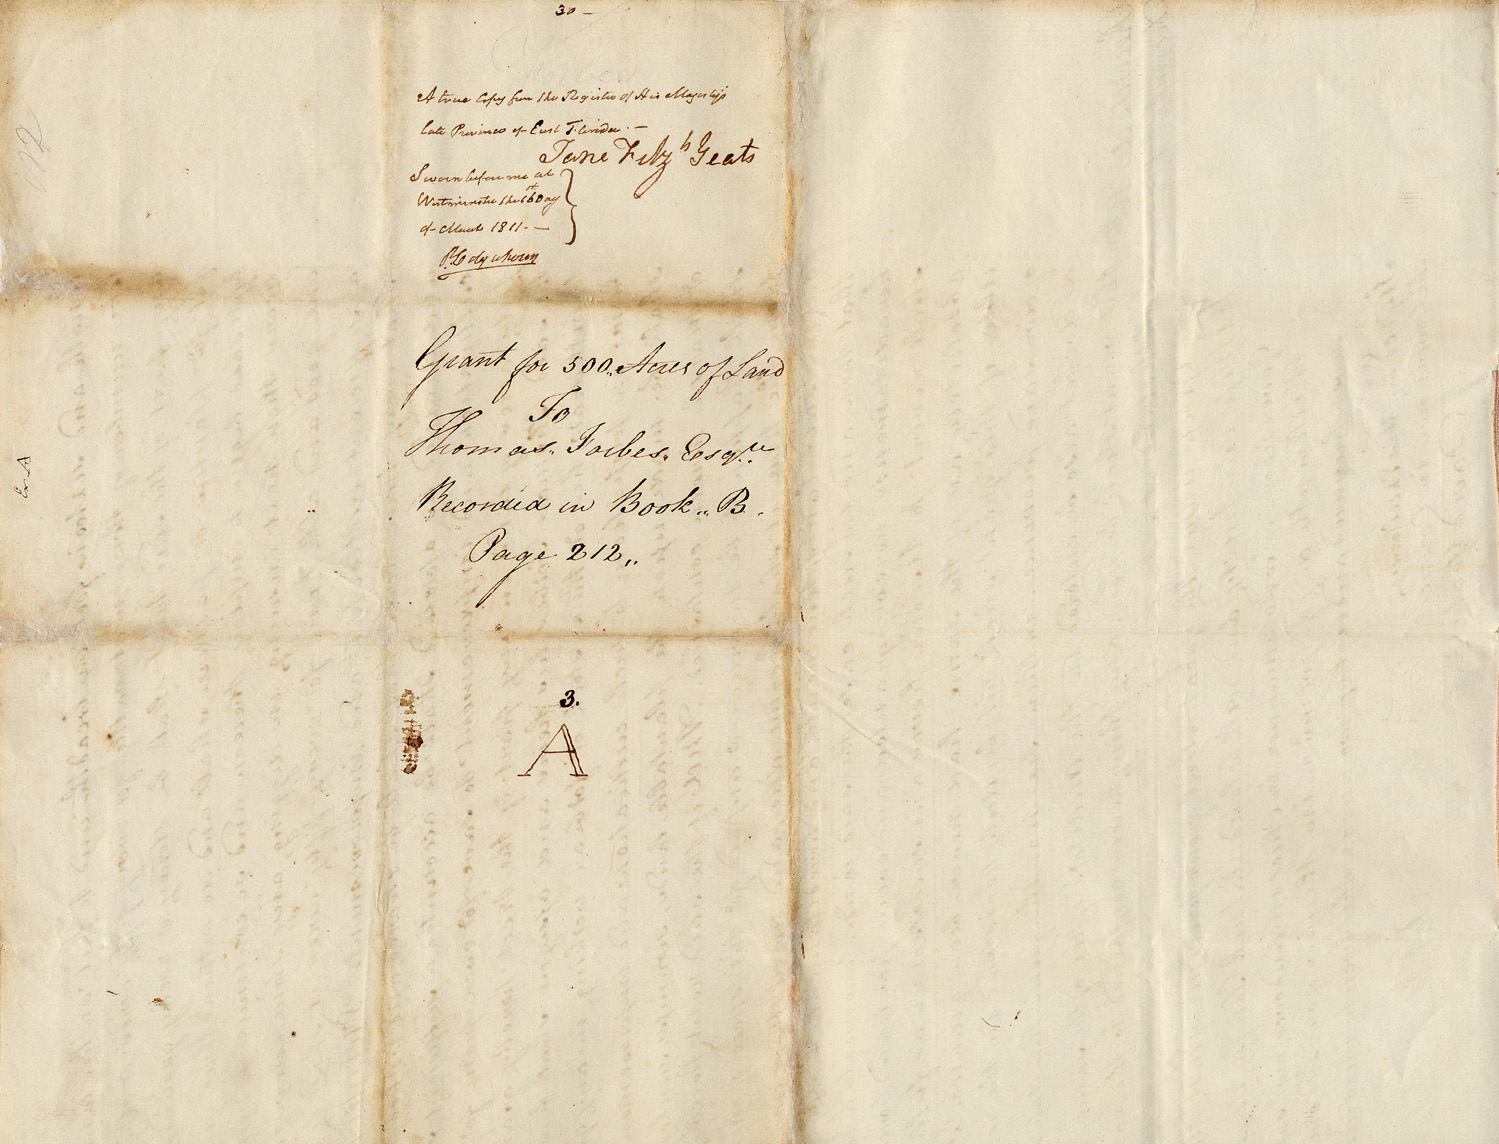 30 –
A true Copy from the Register of His Majesty's
late Province of East Florida. —
Jane Fitz Yeats
Sworn before me at
Westminster the 16 Day
of March 1811. —
P. Colquhoun
Grant for 500,, Acres of Land
To
Thomas,, Forbes,, Esq.re
Recorded in Book ,, B.
Page 212,,
3.
A
12